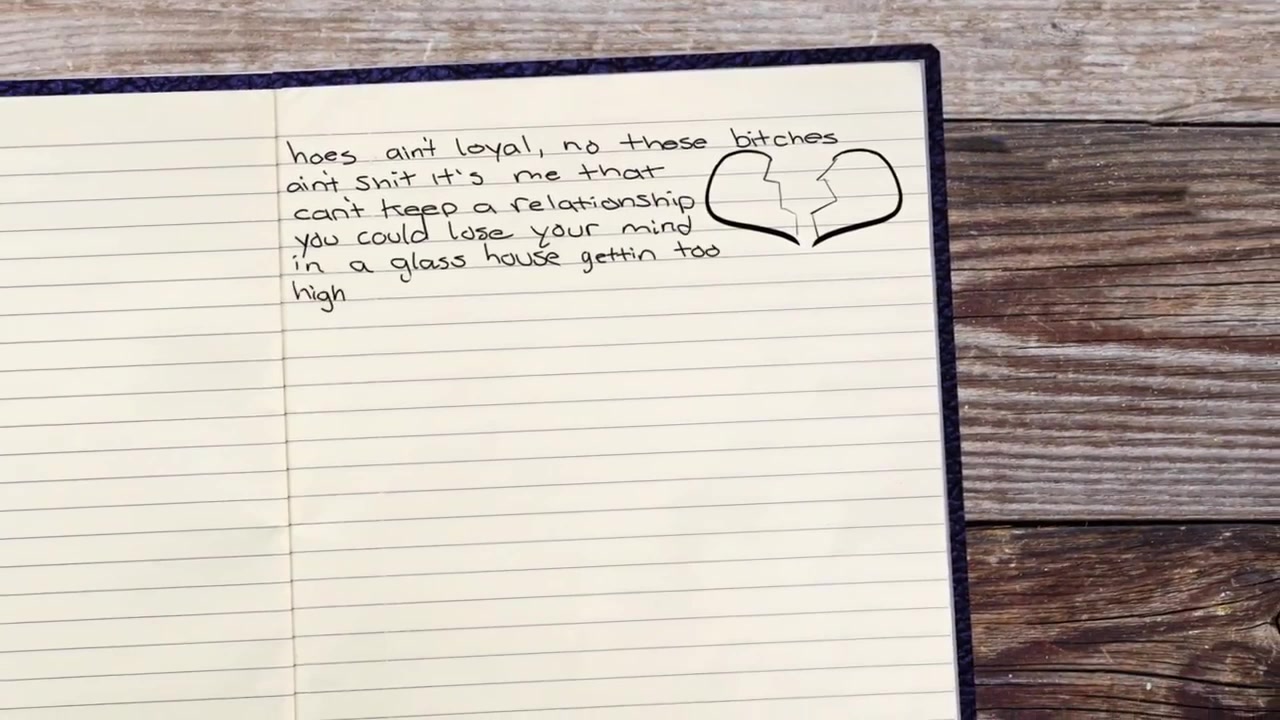 hoes ain't loyal, no these bitches
ain't shit it's me that
can't keep a relationship
you could lose your mind
in a glass house gettin too
high